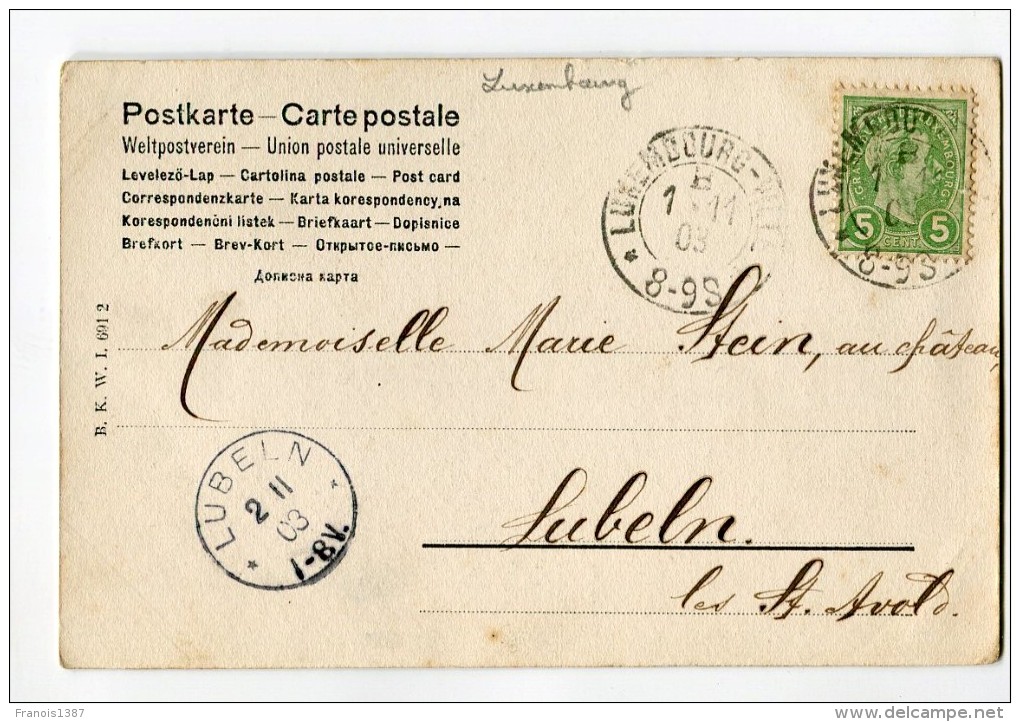 Luxembourg
Postkarte — Carte postale
Weltpostverein — Union postale universelle
Levelező-Lap — Cartolina postale — Post card
Correspondenzkarte — Karta korespondency,na
Korespondenční listek — Briefkaart — Dopisnice
Brefkort — Brev-Kort — Открытое-письмо —
Дописна карта
* LUXEMBOURG-VILLE
1 11
03
8-9S
GRAND LUXEMBOURG
5 CENT 5
LUXEMBOU
8-9S
B. K. W. I. 691 2
Mademoiselle Marie Stein, au château,
* LUBELN *
2 11
03
1-8V.
Lubeln.
les St. Avold.
Franois1387
www.delcampe.net